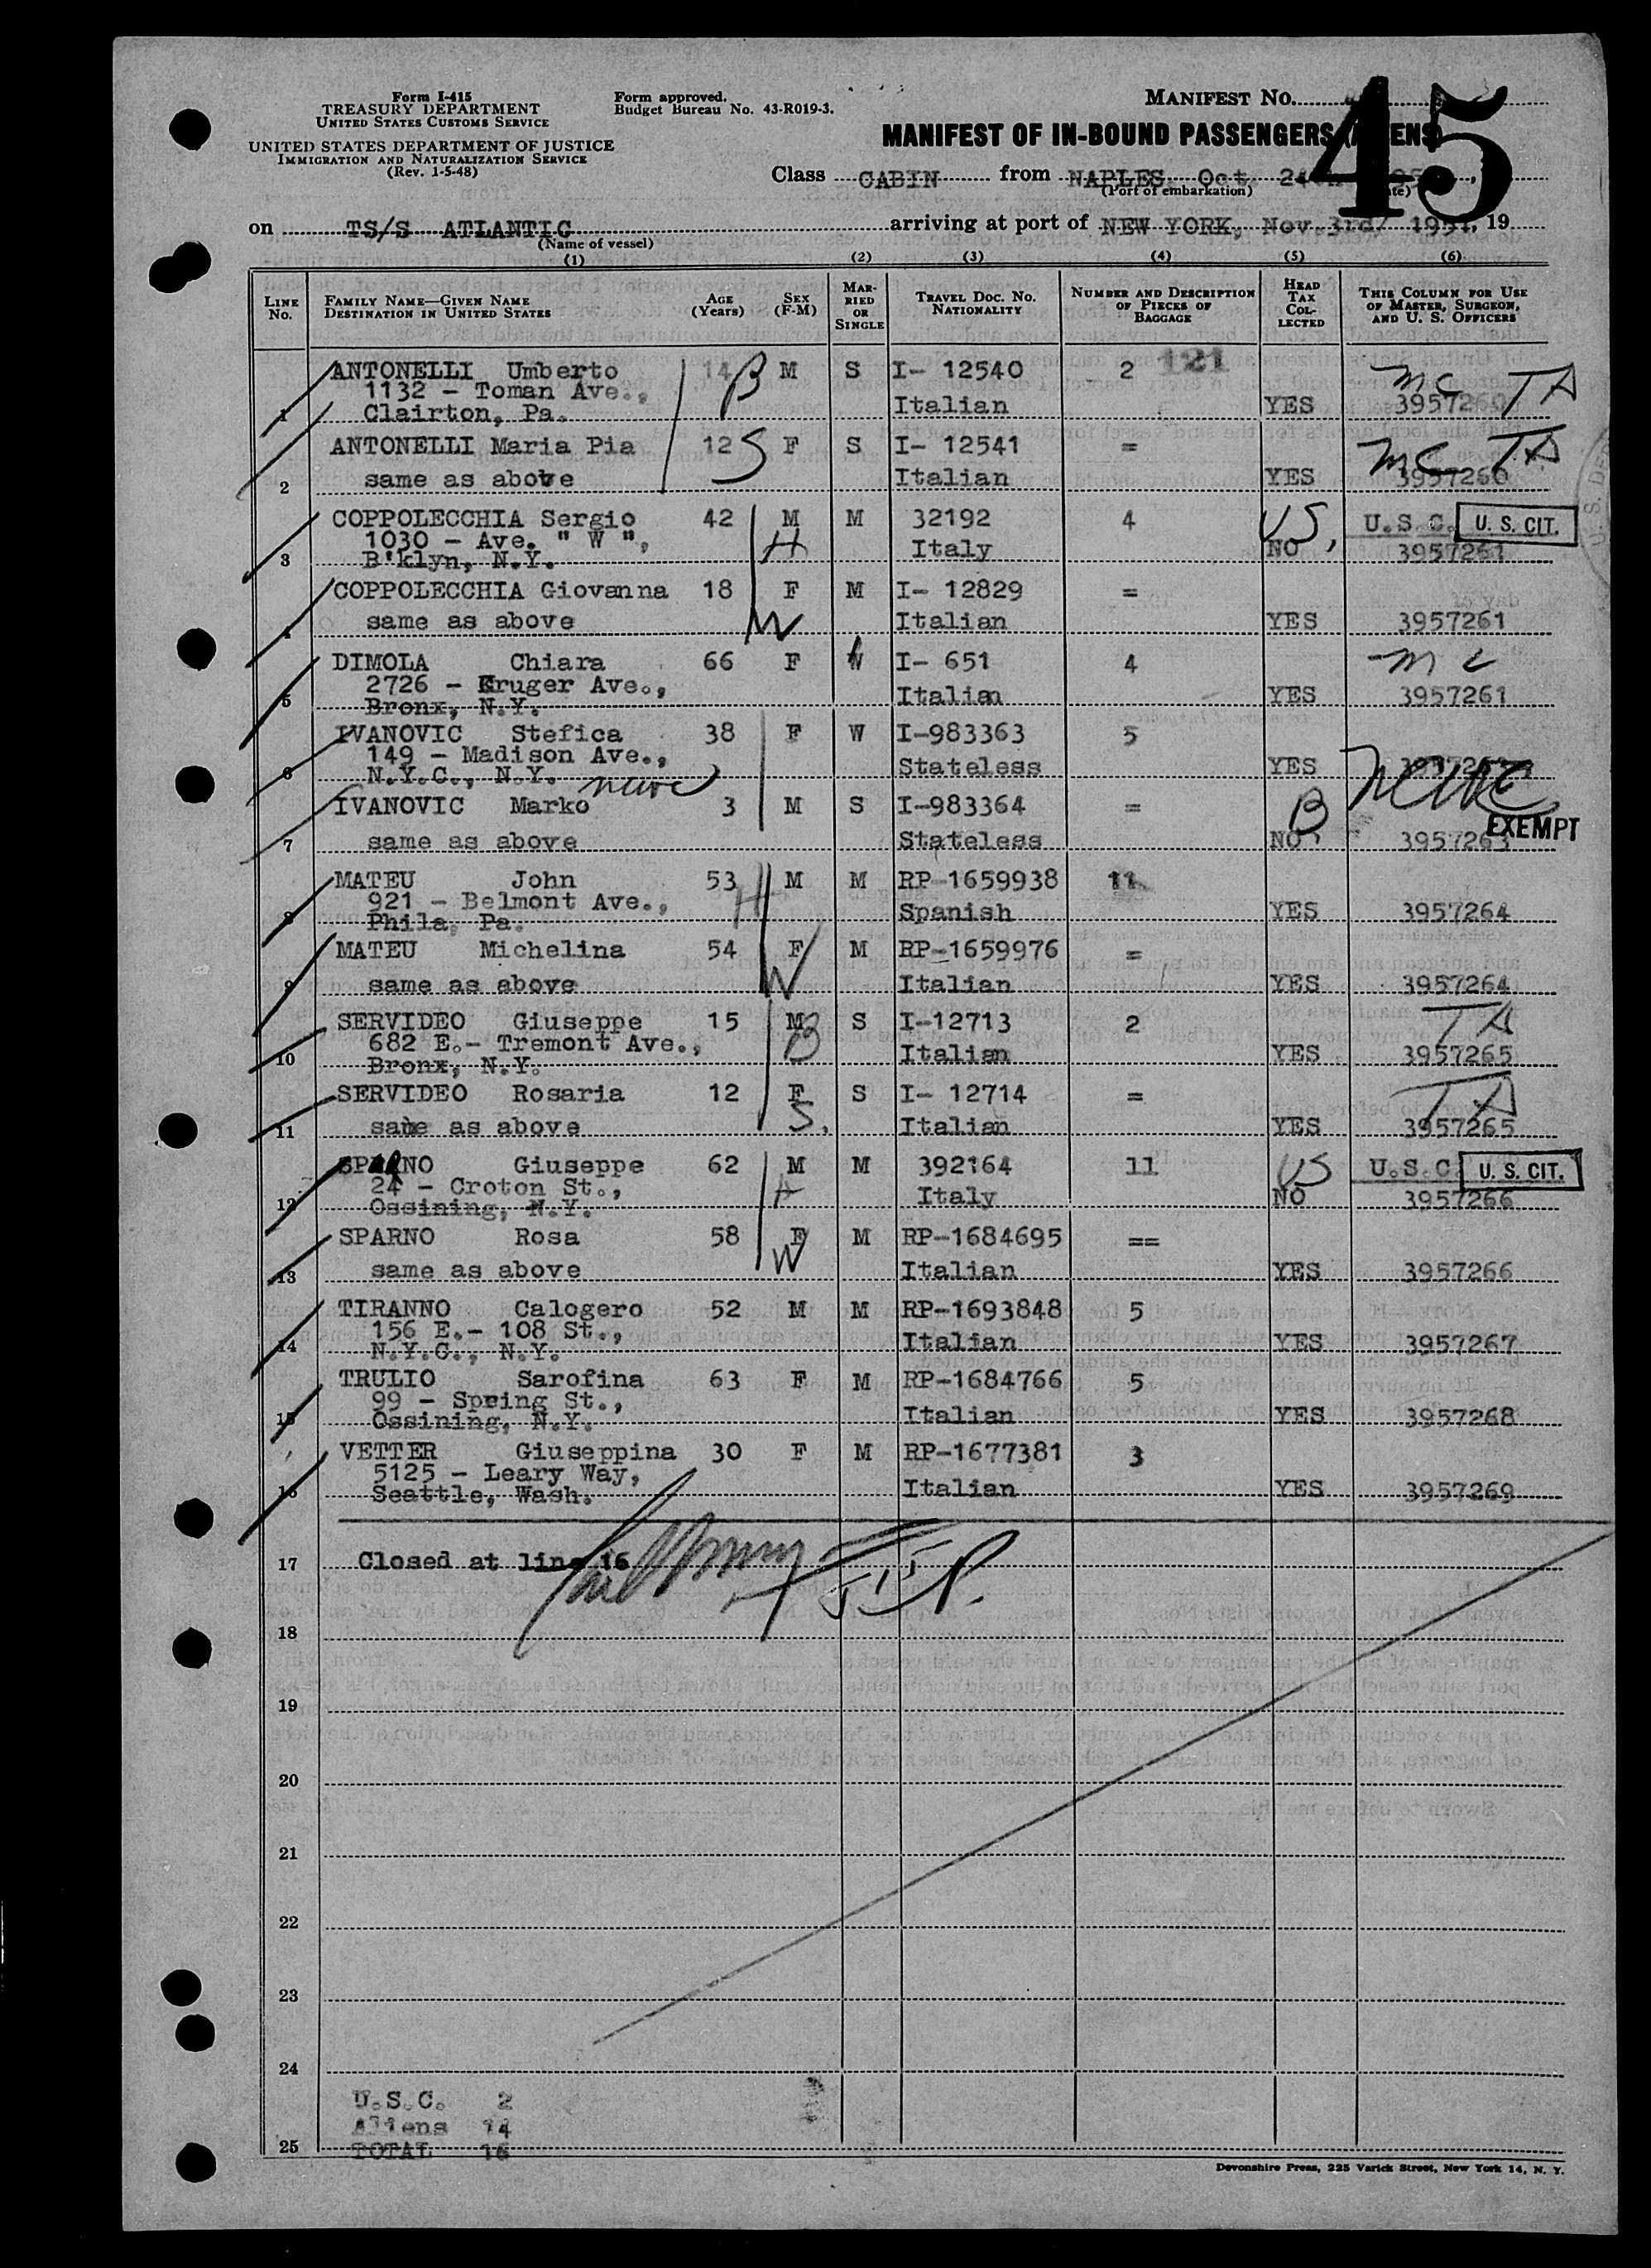 Form I-415
TREASURY DEPARTMENT
UNITED STATES CUSTOMS SERVICE
UNITED STATES DEPARTMENT OF JUSTICE
IMMIGRATION AND NATURALIZATION SERVICE
(Rev. 1-5-48)
Form approved.
Budget Bureau No. 43-R019-3.
MANIFEST No. 45
MANIFEST OF IN-BOUND PASSENGERS
Class CABIN from NAPLES, Oct.
(Port of embarkation)
on TS/S ATLANTIC arriving at port of NEW YORK, Nov. 3rd/ 1951, 19
(Name of vessel)
(1) (2) (3) (4) (5) (6)
LINE No. FAMILY NAME—GIVEN NAME DESTINATION IN UNITED STATES AGE (Years) SEX (F-M) MARRIED OR SINGLE TRAVEL DOC. No. NATIONALITY NUMBER AND DESCRIPTION OF PIECES OF BAGGAGE HEAD TAX COLLECTED THIS COLUMN FOR USE OF MASTER, SURGEON, AND U. S. OFFICERS
ANTONELLI Umberto 14 B M S I- 12540 2 121 mc TA
1132 - Toman Ave., Italian YES 3957260
1 Clairton, Pa.
ANTONELLI Maria Pia 12 S F S I- 12541 = mc TA
2 same as above Italian YES 3957260
COPPOLECCHIA Sergio 42 M M 32192 4 US, U.S.C. U. S. CIT.
1030 - Ave. " W ", H Italy NO 3957261
3 B'klyn, N.Y.
COPPOLECCHIA Giovanna 18 F M I- 12829 =
4 same as above W Italian YES 3957261
DIMOLA Chiara 66 F W I- 651 4 mc
2726 - Kruger Ave., Italian YES 3957261
5 Bronx, N.Y.
IVANOVIC Stefica 38 F W I-983363 5
149 - Madison Ave., Stateless YES
6 N.Y.C., N.Y.
IVANOVIC Marko 3 M S I-983364 = B EXEMPT
7 same as above Stateless NO 3957263
MATEU John 53 H M M RP-1659938 11
921 - Belmont Ave., Spanish YES 3957264
8 Phila, Pa.
MATEU Michelina 54 F M RP-1659976 =
9 same as above W Italian YES 3957264
SERVIDEO Giuseppe 15 M S I-12713 2 TA
682 E.- Tremont Ave., B Italian YES 3957265
10 Bronx, N.Y.
SERVIDEO Rosaria 12 F S I- 12714 = TA
11 same as above S. Italian YES 3957265
SPARNO Giuseppe 62 M M 392164 11 US U.S.C. U. S. CIT.
24 - Croton St., H Italy NO 3957266
12 Ossining, N.Y.
SPARNO Rosa 58 F M RP-1684695 ==
13 same as above W Italian YES 3957266
TIRANNO Calogero 52 M M RP-1693848 5
156 E.- 108 St., Italian YES 3957267
14 N.Y.C., N.Y.
TRULIO Sarofina 63 F M RP-1684766 5
99 - Spring St., Italian YES 3957268
15 Ossining, N.Y.
VETTER Giuseppina 30 F M RP-1677381 3
5125 - Leary Way, Italian YES 3957269
16 Seattle, Wash.
17 Closed at line 16
18
19
20
21
22
23
24
U.S.C. 2
Aliens 14
25 TOTAL 16
Devonshire Press, 225 Varick Street, New York 14, N. Y.